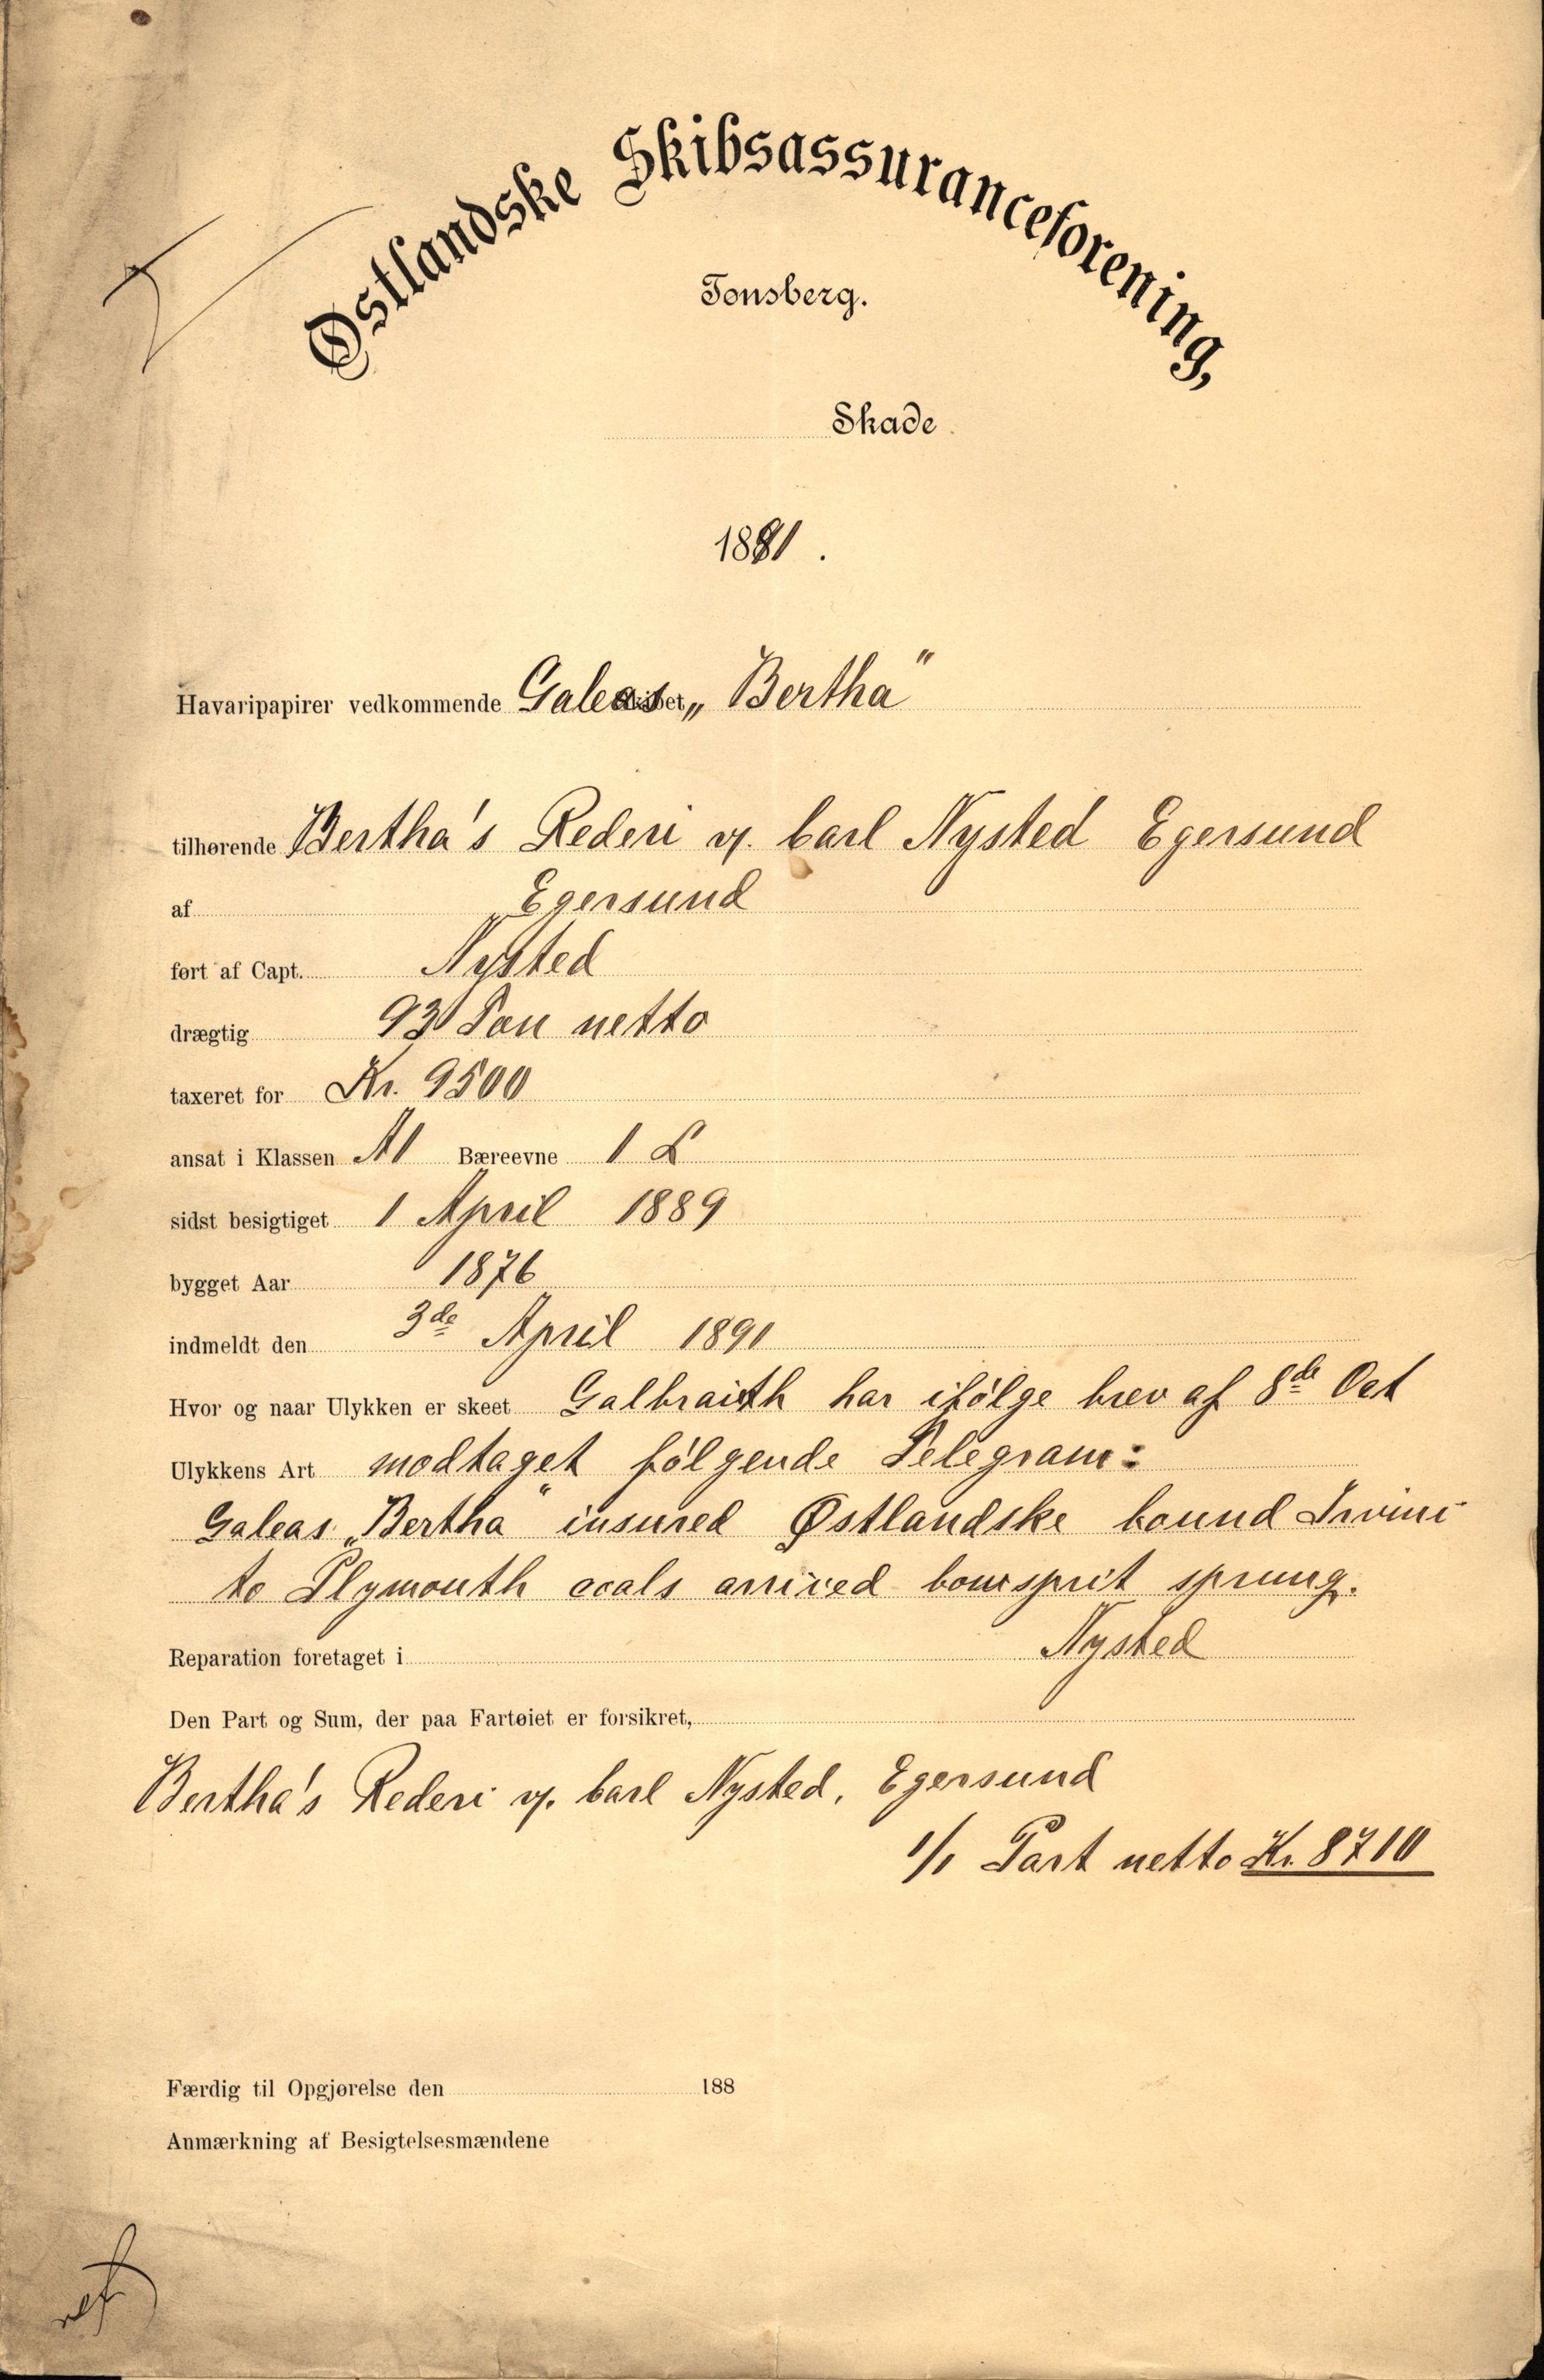 Østlandske Skibsassuranceforening,
Tønsberg.
Skade
1891.
Havaripapirer vedkommende Galeas „Bertha"
tilhørende Bertha's Rederi v/. Carl Nysted Egersund
af Egersund
ført af Capt. Nysted
drægtig 93 Ton netto
taxeret for Kr. 9500
ansat i Klassen A1 Bæreevne 1 L
sidst besigtiget 1 April 1889
bygget Aar 1876
indmeldt den 3de April 1891
Hvor og naar Ulykken er skeet Galbraith har ifølge brev af 8de Oct
Ulykkens Art modtaget følgende Telegram:
Galeas „Bertha" insured Østlandske bound Irvine
to Plymouth coals arrived bowsprit sprung.
Nysted
Reparation foretaget i
Den Part og Sum, der paa Fartøiet er forsikret,
Bertha's Rederi v/. Carl Nysted, Egersund
1/1 Part netto Kr. 8710
Færdig til Opgjørelse den 188
Anmærkning af Besigtelsesmændene